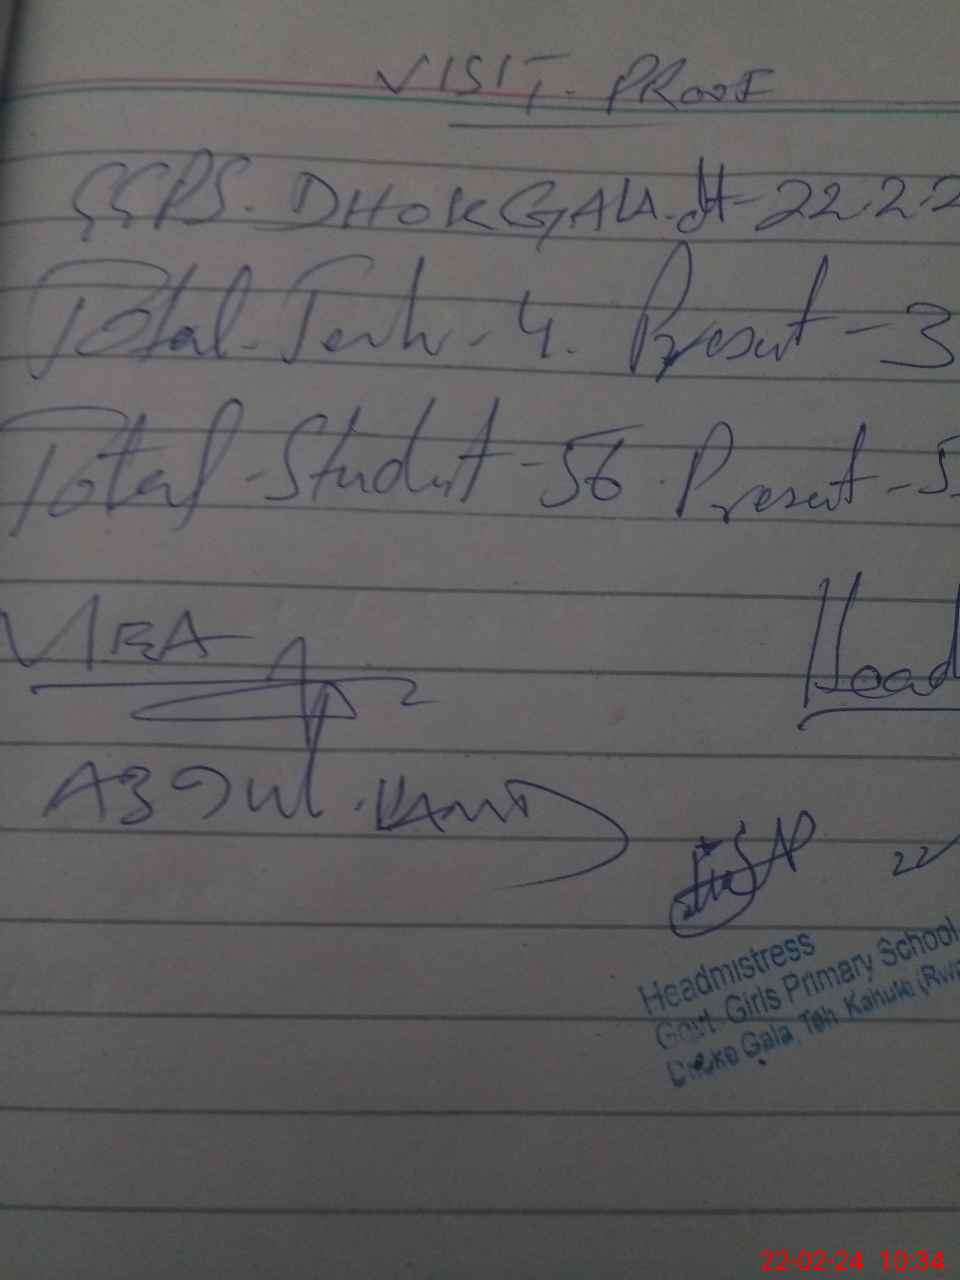 VISIT. PROOF
GGPS. DHOK GALA. dt-22.2.2
Total-Teach-4. Present-3
Total-Student-56. Present-5
MEA
Head
ABDUL.
22
Headmistress
Govt. Girls Primary School
Dhoke Gala Teh. Kahuta (Rwp
22-02-24 10:34